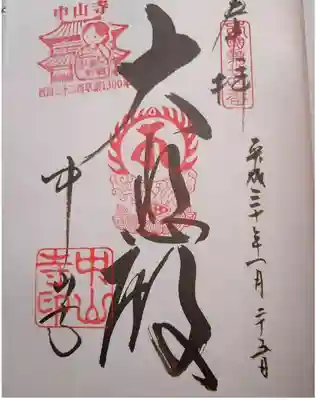 奉拝
平成三十年一月二十五日
大悲殿
中山寺
西国三十三所草創1300年
中山寺
中山寺印